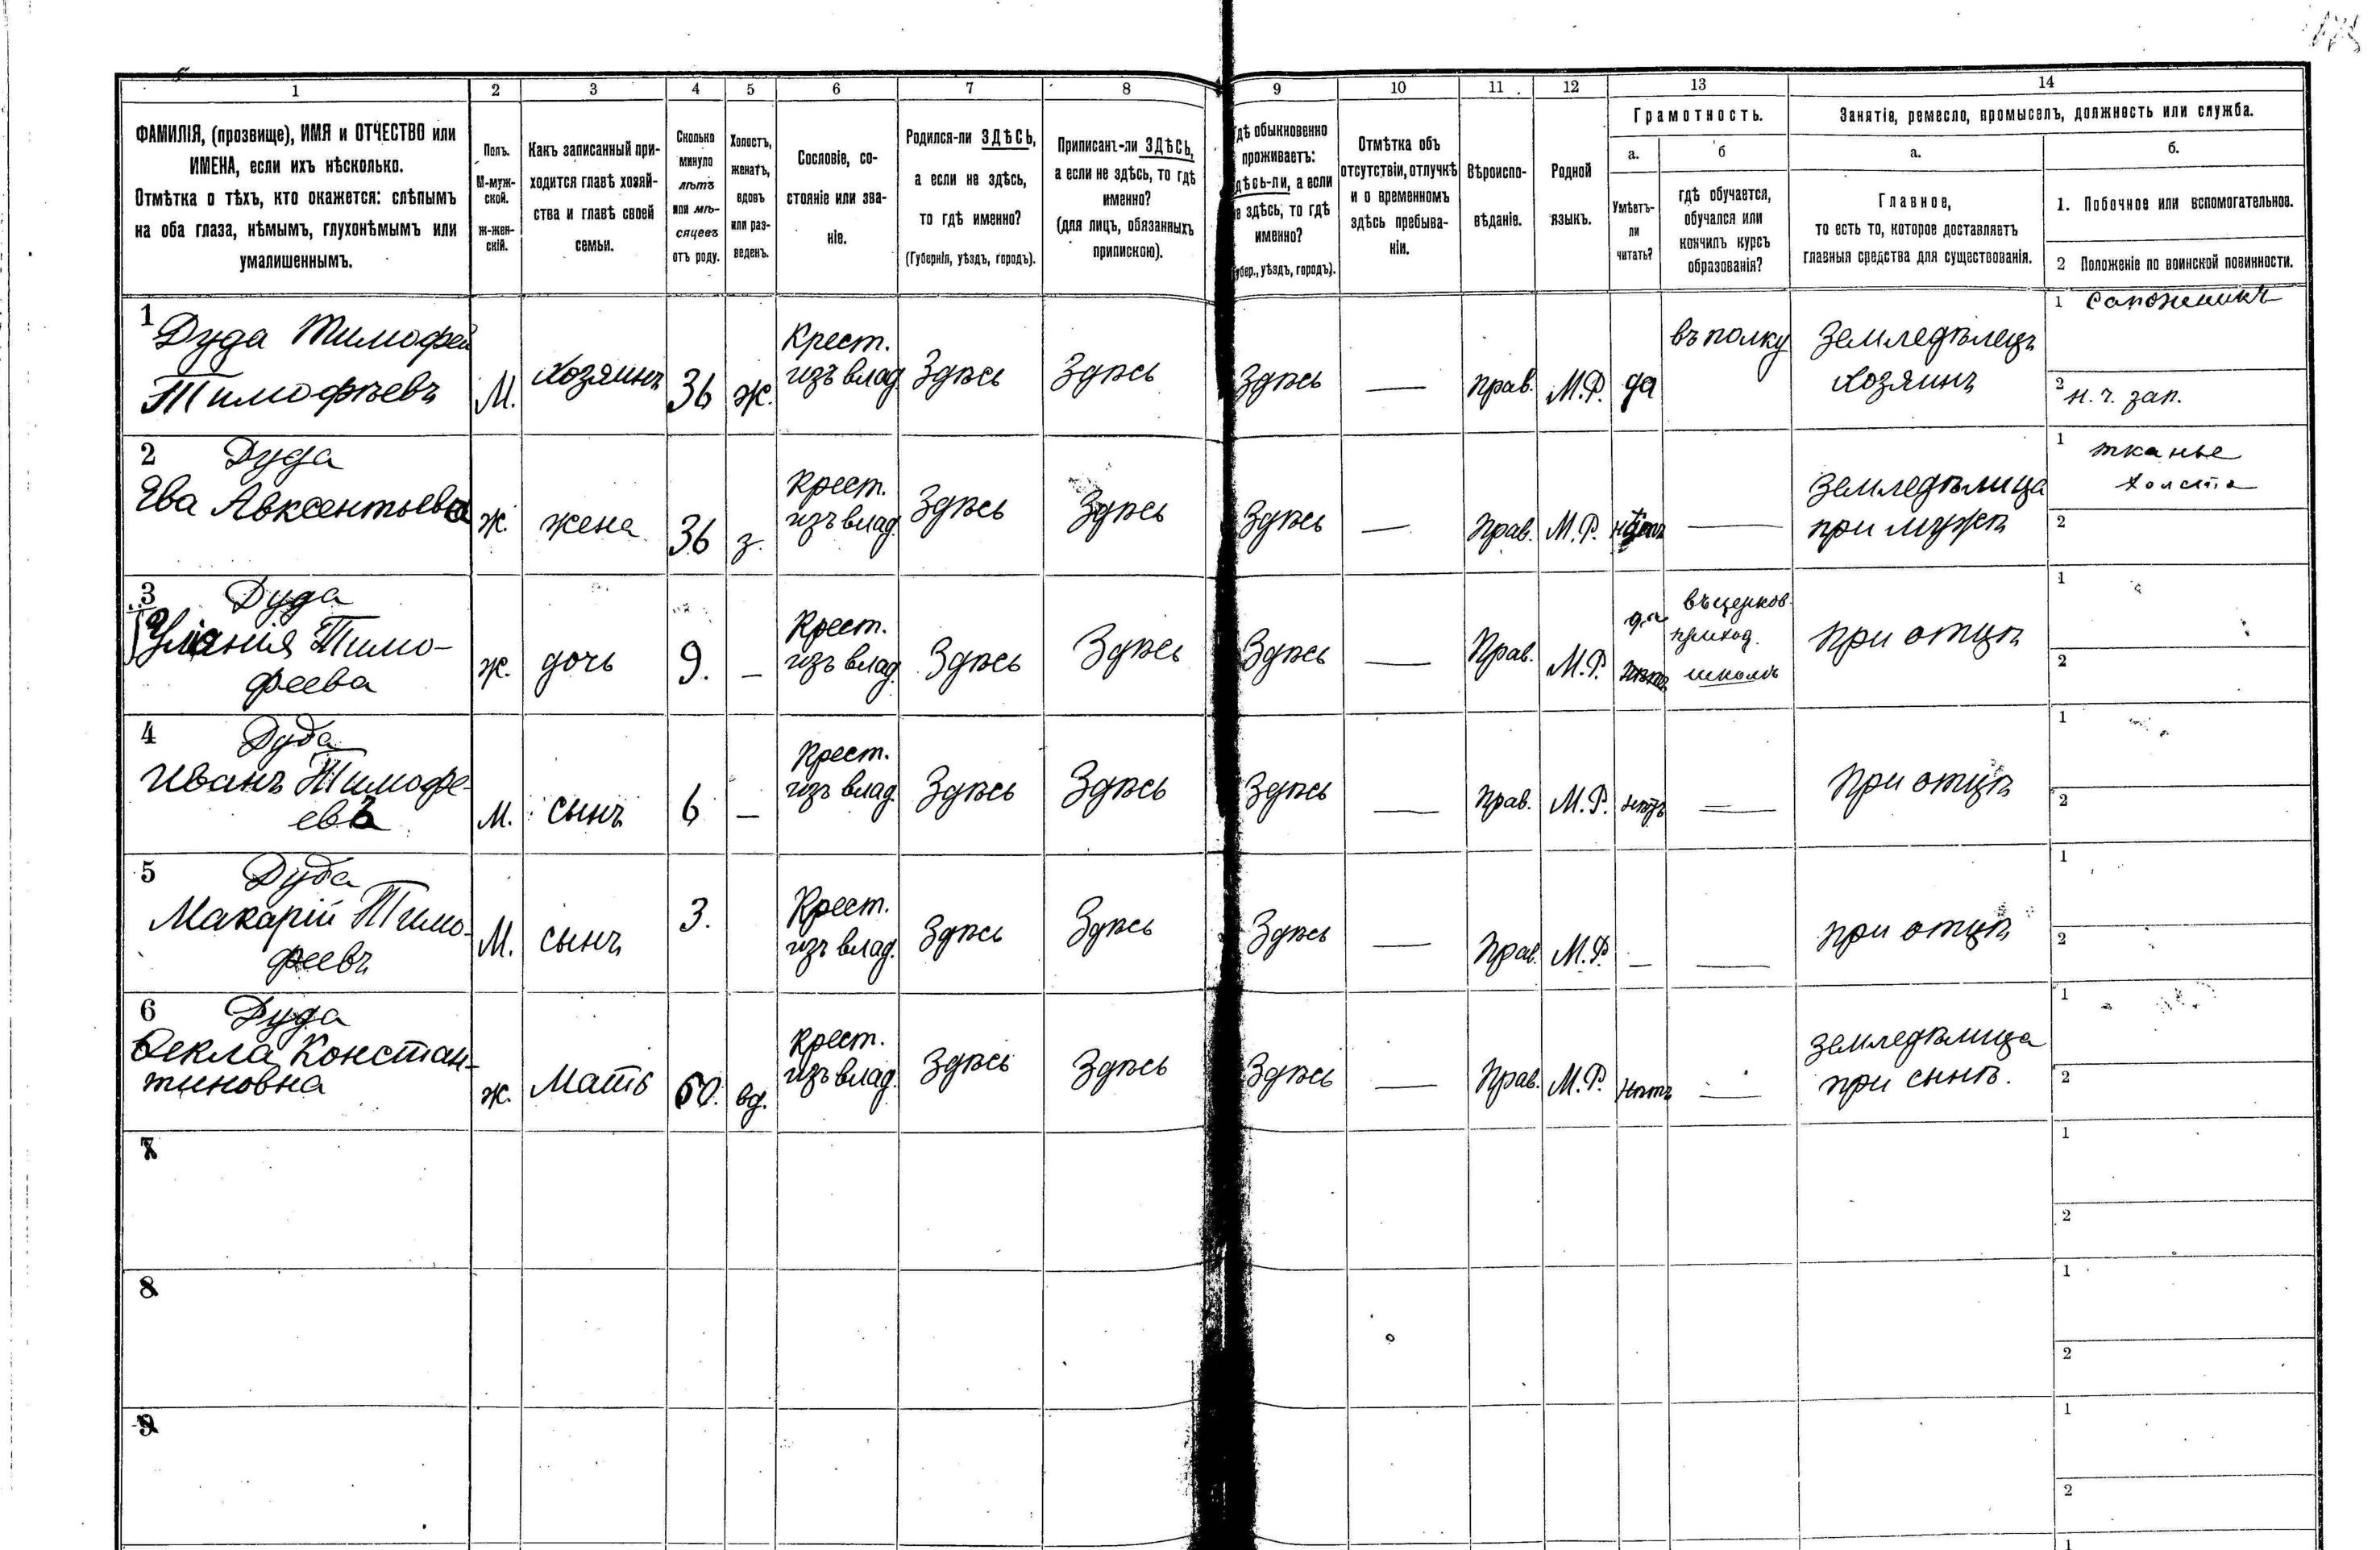 1 2 3 4 5 6 7 8 9 10 11 12 13 14
ФАМИЛІЯ, (прозвище), ИМЯ и ОТЧЕСТВО или
ИМЕНА, если ихъ нѣсколько.
Отмѣтка о тѣхъ, кто окажется: слѣпымъ
на оба глаза, нѣмымъ, глухонѣмымъ или
умалишеннымъ.
Полъ.
М-муж-
ской.
ж-жен-
скій.
Какъ записанный при-
ходится главѣ хозяй-
ства и главѣ своей
семьи.
Сколько
минуло
лѣтъ
или мѣ-
сяцевъ
отъ роду.
Холостъ,
женатъ,
вдовъ
или раз-
веденъ.
Сословіе, со-
стояніе или зва-
ніе.
Родился-ли ЗДѢСЬ,
а если не здѣсь,
то гдѣ именно?
(Губернія, уѣздъ, городъ).
Приписанъ-ли ЗДѢСЬ,
а если не здѣсь, то гдѣ
именно?
(для лицъ, обязанныхъ
припискою).
гдѣ обыкновенно
проживаетъ:
здѣсь-ли, а если
не здѣсь, то гдѣ
именно?
(Губер., уѣздъ, городъ).
Отмѣтка объ
отсутствіи, отлучкѣ
и о временномъ
здѣсь пребыва-
ніи.
Вѣроиспо-
вѣданіе.
Родной
языкъ.
Грамотность.
а.
Умѣетъ-
ли
читать?
б
гдѣ обучается,
обучался или
кончилъ курсъ
образованія?
Занятіе, ремесло, промыселъ, должность или служба.
а.
Главное,
то есть то, которое доставляетъ
главныя средства для существованія.
б.
1. Побочное или вспомогательное.
2 Положеніе по воинской повинности.
1 Дуда Тимофей
Тимофѣевъ
М.
Хозяинъ
36
ж.
Крест.
изъ влад.
Здѣсь
Здѣсь
Здѣсь
—
прав.
М.Р.
да
въ полку
Земледѣлецъ
хозяинъ
1 сапожникъ
2 н. ч. зап.
2 Дуда
Ева Авксентьева
ж.
жена
36
з.
Крест.
изъ влад.
Здѣсь
Здѣсь
Здѣсь
—
Прав.
М.Р.
нѣтъ
—
Земледѣлица
при мужѣ
1 тканье
холста
2
3 Дуда
Улянія Тимо-
феева
ж.
дочь
9.
—
Крест.
изъ влад.
Здѣсь
Здѣсь
Здѣсь
—
Прав.
М.Р.
да
нѣтъ
въ церков.
приход.
школѣ
при отцѣ
1
2
4 Дуда
Иванъ Тимофе-
евъ
М.
сынъ
6
—
Крест.
изъ влад.
Здѣсь
Здѣсь
Здѣсь
—
Прав.
М.Р.
нѣтъ
—
при отцѣ
1
2
5 Дуда
Макарій Тимо-
феевъ
М.
сынъ
3.
Крест.
изъ влад.
Здѣсь
Здѣсь
Здѣсь
—
Прав.
М.Р.
—
—
при отцѣ
1
2
6 Дуда
Ѳекла Констан-
тиновна
ж.
Мать
60.
вд.
Крест.
изъ влад.
Здѣсь
Здѣсь
Здѣсь
—
Прав.
М.Р.
нѣтъ
—
Земледѣлица
при сынѣ.
1
2
7
1
2
8
1
2
9
1
2
1